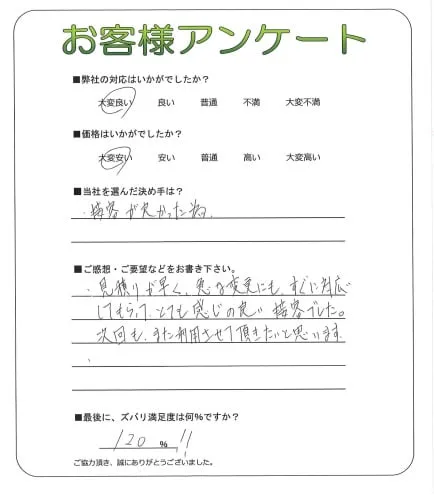 お客様アンケート
■弊社の対応はいかがでしたか?
大変良い 良い 普通 不満 大変不満
■価格はいかがでしたか?
大変安い 安い 普通 高い 大変高い
■当社を選んだ決め手は?
・接客が良かった為。
■ご感想・ご要望などをお書き下さい。
・見積りが早く、急な変更にも、すぐに対応
してもらって、とても感じの良い接客でした。
次回も、また利用させて頂きたいと思います
、
■最後に、ズバリ満足度は何%ですか?
120 % !!
ご協力頂き、誠にありがとうございました。